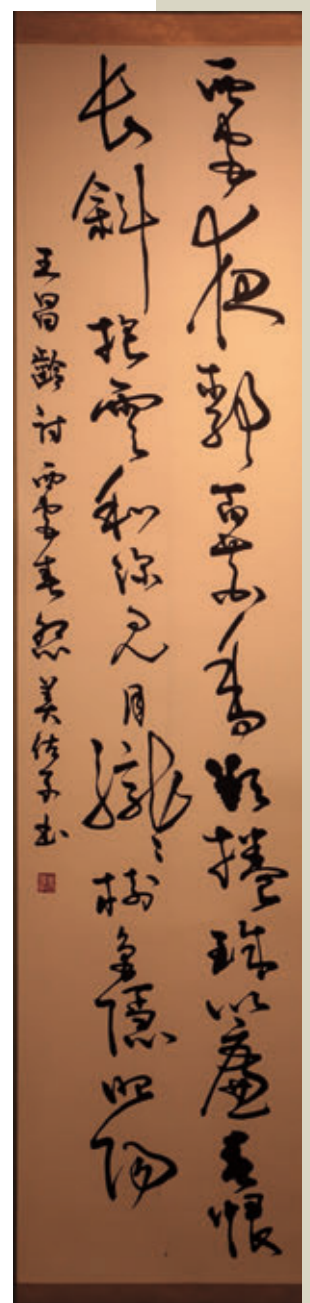 西宮夜静百花香欲捲珠簾春恨
長斜抱雲和深見月朧々樹色隱昭陽
王昌齡詩西宮春怨 美佐子書